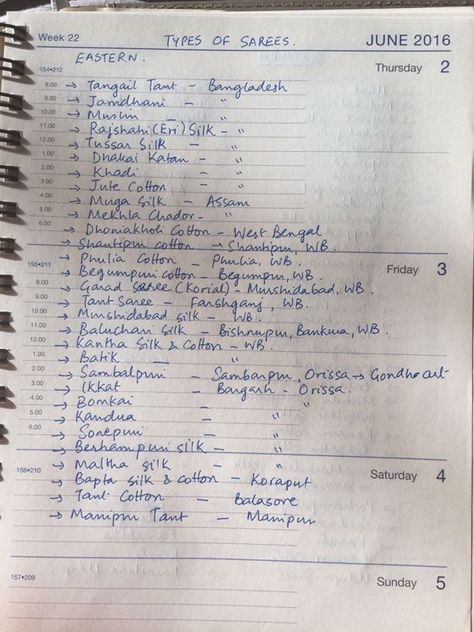 Week 22 TYPES OF SAREES. JUNE 2016
EASTERN. Thursday 2
154•212
8.00 → Tangail Tant - Bangladesh
9.00 → Jamdhani - "
10.00 → Muslin - "
11.00 → Rajshahi (Eri) Silk - "
12.00 → Tussar Silk - "
1.00 → Dhakai Katan - "
2.00 → Khadi - "
3.00 → Jute Cotton - "
4.00 → Muga Silk - Assam
5.00 → Mekhla Chador - "
6.00 → Dhoniakholi Cotton - West Bengal
→ Shantipur cotton → Shantipur, WB.
155•211 → Phulia Cotton - Phulia, WB. Friday 3
→ Begumpuri cotton - Begumpur, WB.
8.00 → Garad saree (Korial) - Murshidabad, WB.
9.00 → Tant Saree - Farshganj, WB.
10.00 → Murshidabad silk - WB.
11.00 → Baluchari Silk - Bishnupur, Bankura, WB.
12.00 → Kantha Silk & Cotton - WB.
1.00 → Batik - "
2.00 → Sambalpuri - Sambarpur, Orissa → Gondho art
3.00 → Ikkat - Bargarh - Orissa.
4.00 → Bomkai - "
5.00 → Kandua - "
6.00 → Sonepuri - "
→ Berhampuri silk - "
156•210 → Maltha silk - " Saturday 4
→ Bapta silk & cotton - Koraput
→ Tant Cotton - Balasore
→ Manipur Tant - Manipur
157•209 Sunday 5